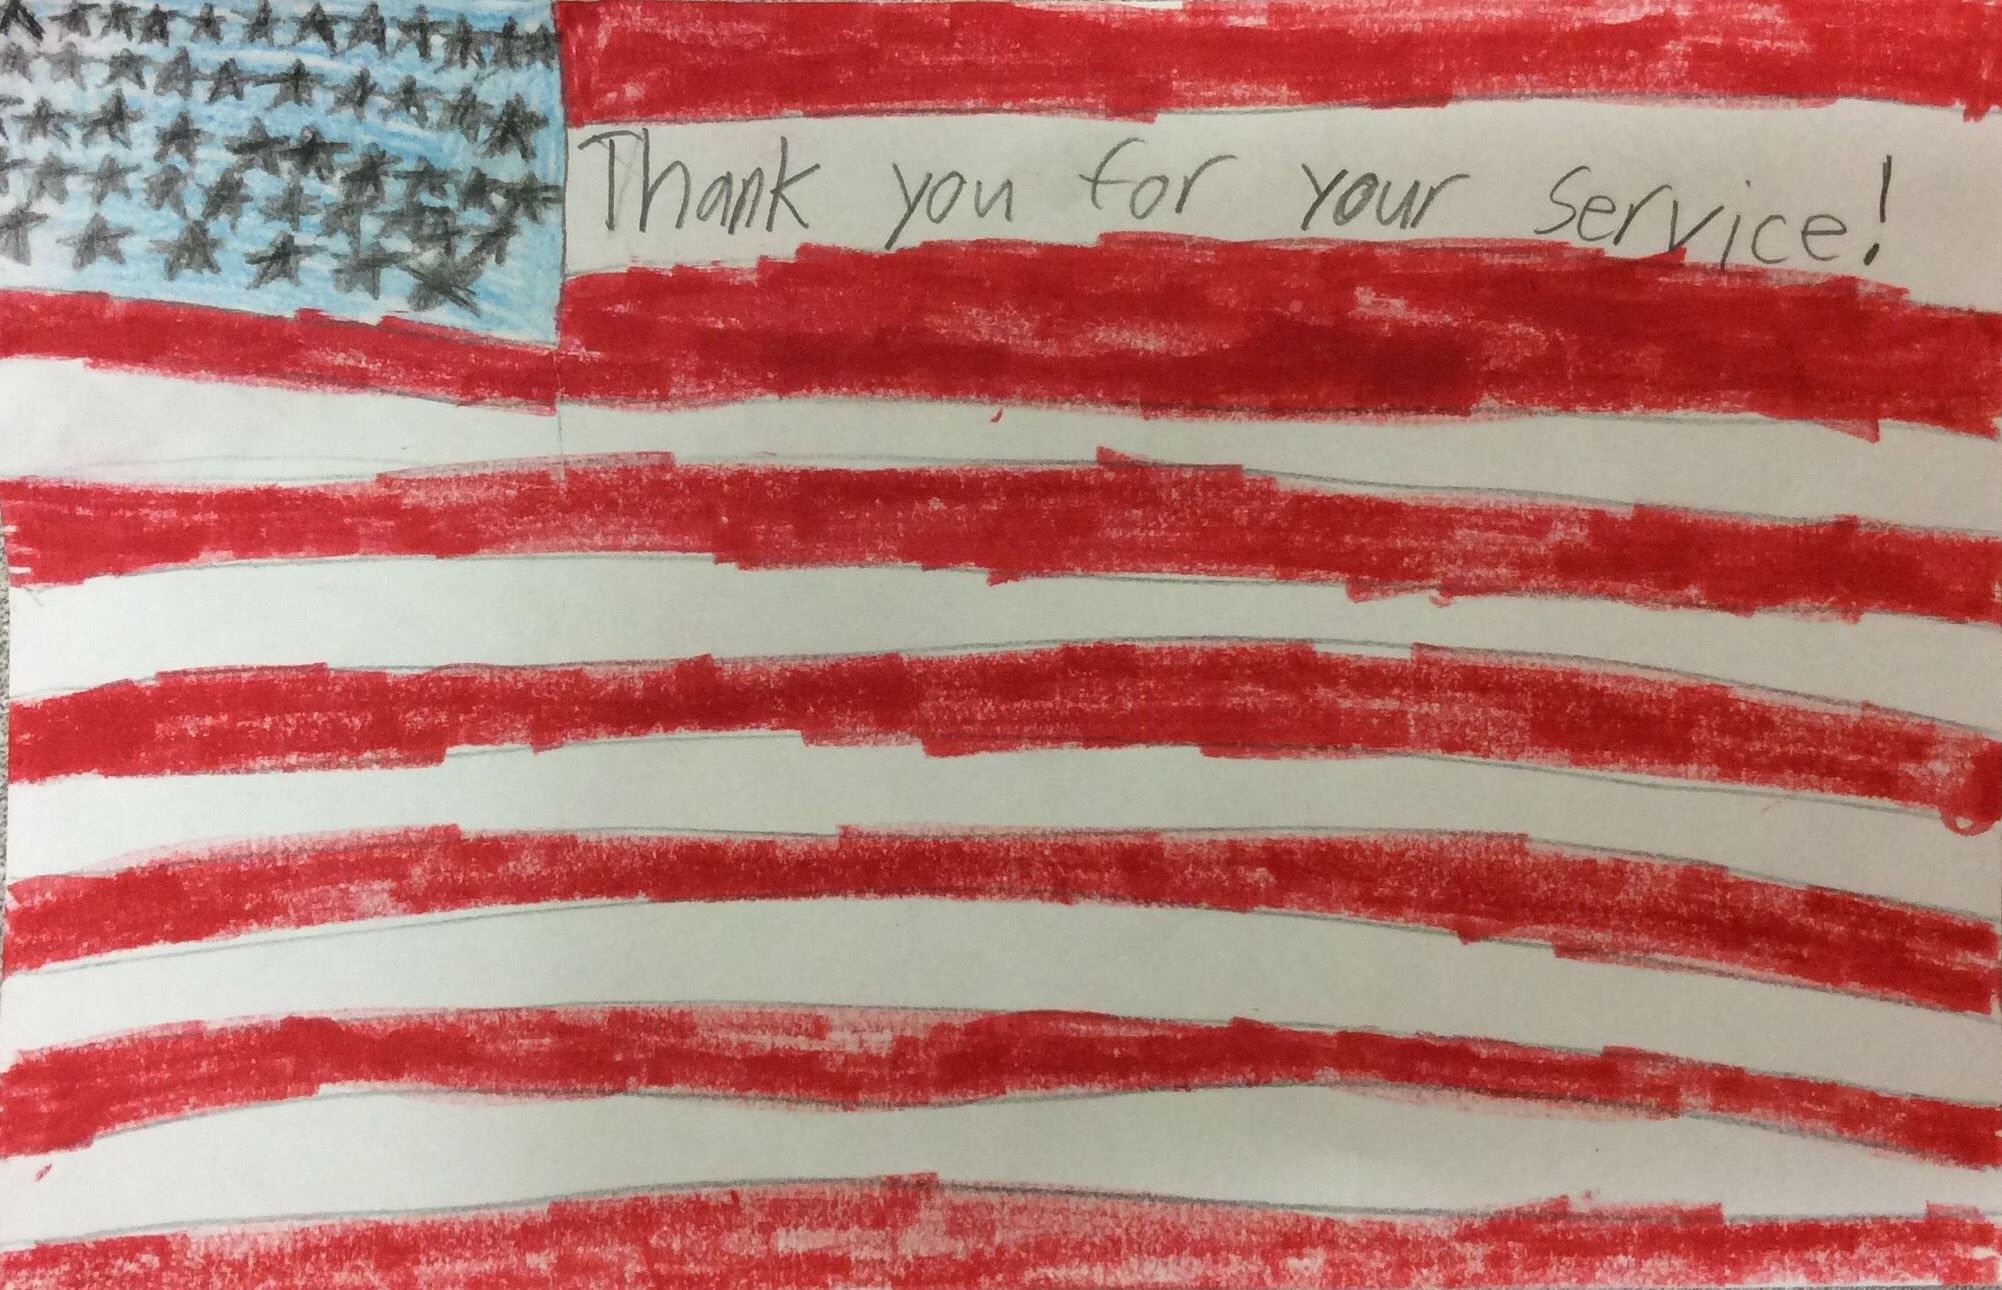 Thank you for your service!